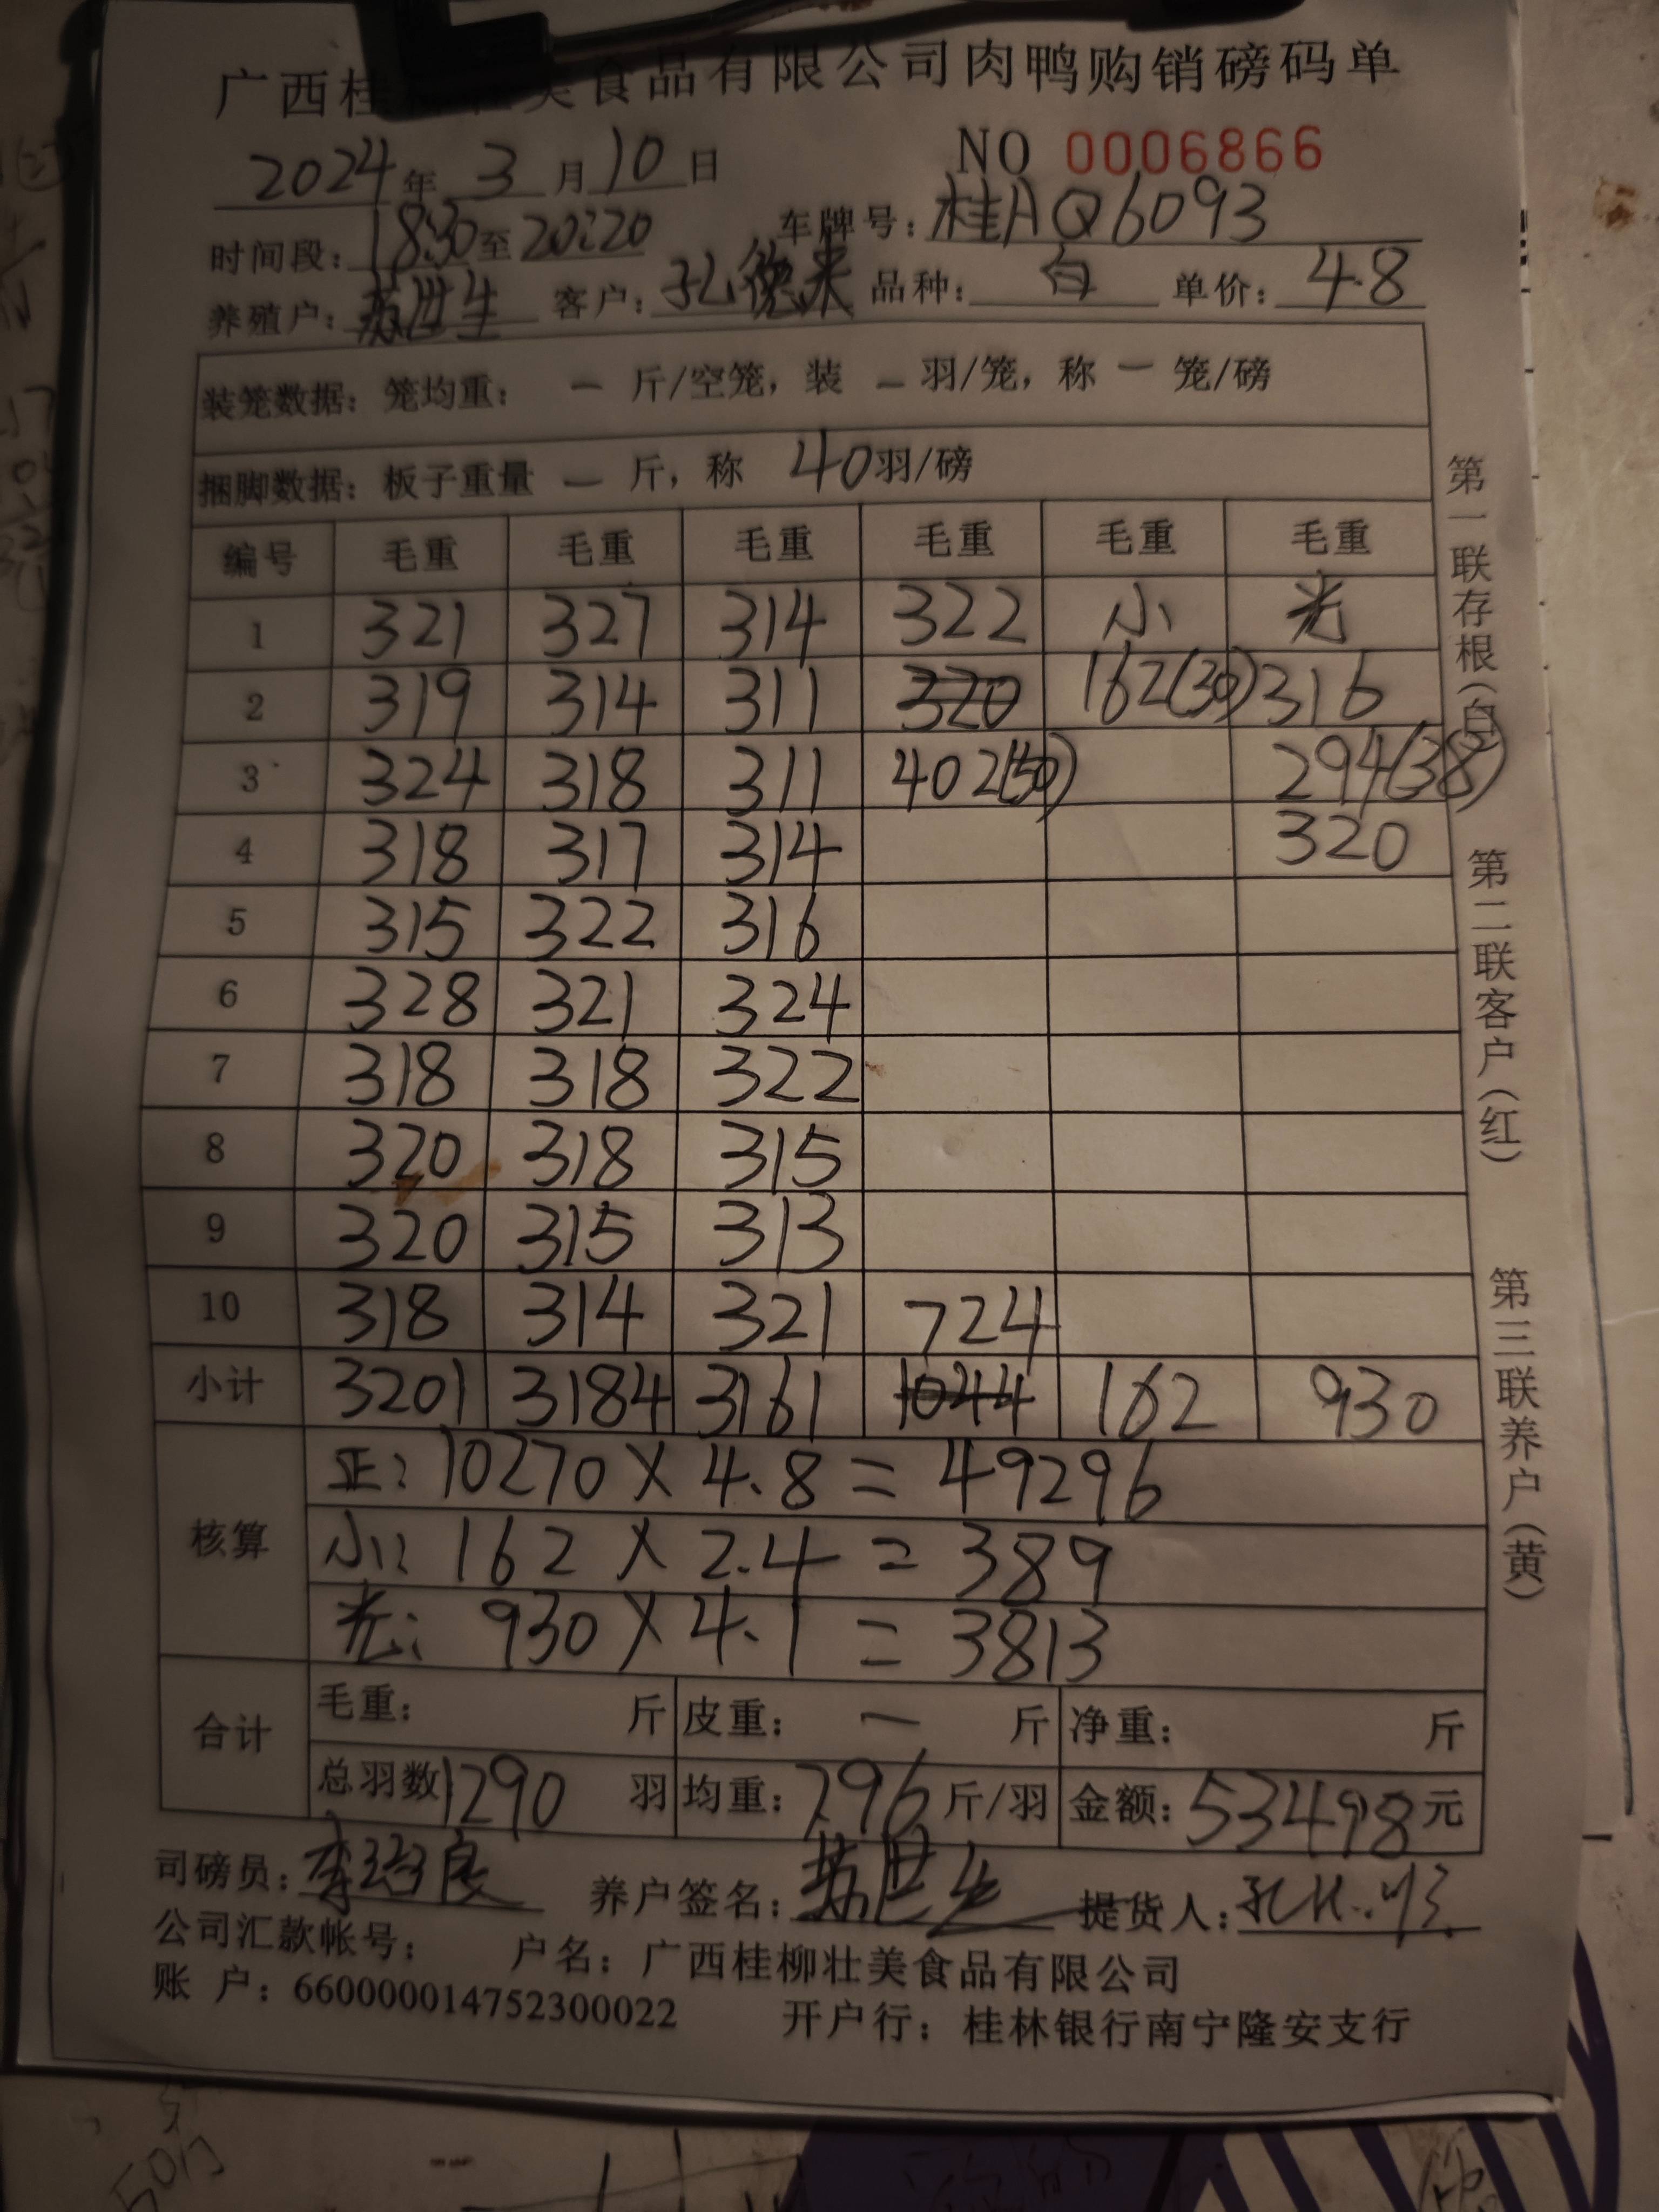 广西桂 美食品有限公司肉鸭购销磅码单
2024年 3月10日 NO 0006866
时间段: 18:30至20:20 车牌号: 桂AQ6093
养殖户: 苏世生 客户: 孔德来 品种: 白 单价: 4.8
装笼数据: 笼均重: — 斤/空笼, 装 — 羽/笼, 称 — 笼/磅
捆脚数据: 板子重量 — 斤, 称 40羽/磅
编号 毛重 毛重 毛重 毛重 毛重 毛重
1 321 327 314 322 小 光
2 319 314 311 320 162(30) 316
3 324 318 311 402(50) 294(38)
4 318 317 314 320
5 315 322 316
6 328 321 324
7 318 318 322
8 320 318 315
9 320 315 313
10 318 314 321 724
小计 3201 3184 3161 1044 162 930
核算
正: 10270 × 4.8 = 49296
小: 162 × 2.4 = 389
光: 930 × 4.1 = 3813
合计
毛重: 斤 皮重: — 斤 净重: 斤
总羽数 1290 羽 均重: 7.96 斤/羽 金额: 53498 元
司磅员: 李治良 养户签名: 苏世生 提货人:
公司汇款帐号: 户名: 广西桂柳壮美食品有限公司
账 户: 660000014752300022 开户行: 桂林银行南宁隆安支行
第一联存根(白) 第二联客户(红) 第三联养户(黄)